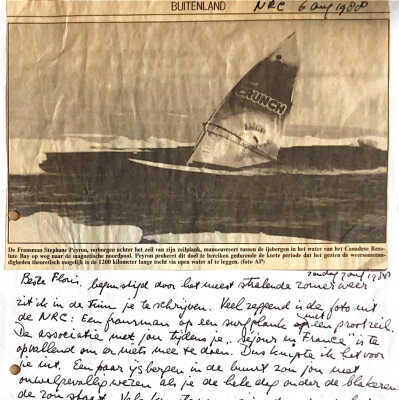 BUITENLAND
NRC 6 aug 1988
CRUNCH
De Fransman Stephane Peyron, verborgen achter het zeil van zijn zeilplank, manoeuvreert tussen de ijsbergen in het water van het Canadese Reso-
lute Bay op weg naar de magnetische noordpool. Peyron probeert dit doel te bereiken gedurende de korte periode dat het gezien de weersomstan-
digheden theoretisch mogelijk is de 1200 kilometer lange tocht via open water af te leggen. (foto AP)
zondag 7 aug 1988
Beste Floris, begunstigd door het meest stralende zomerweer
zit ik in de tuin je te schrijven. Veel zeggend is de foto uit
de NRC: Een fransman op een surfplank met een grootzeil.
De associatie met jou tijdens je "séjour in France" is te
opvallend om er niets mee te doen. Dus knipte ik het voor
je uit. Een paar ijsbergen in de buurt zou jou niet
onwelgevallig wezen als je de hele dag onder de blakeren
de zon staat.